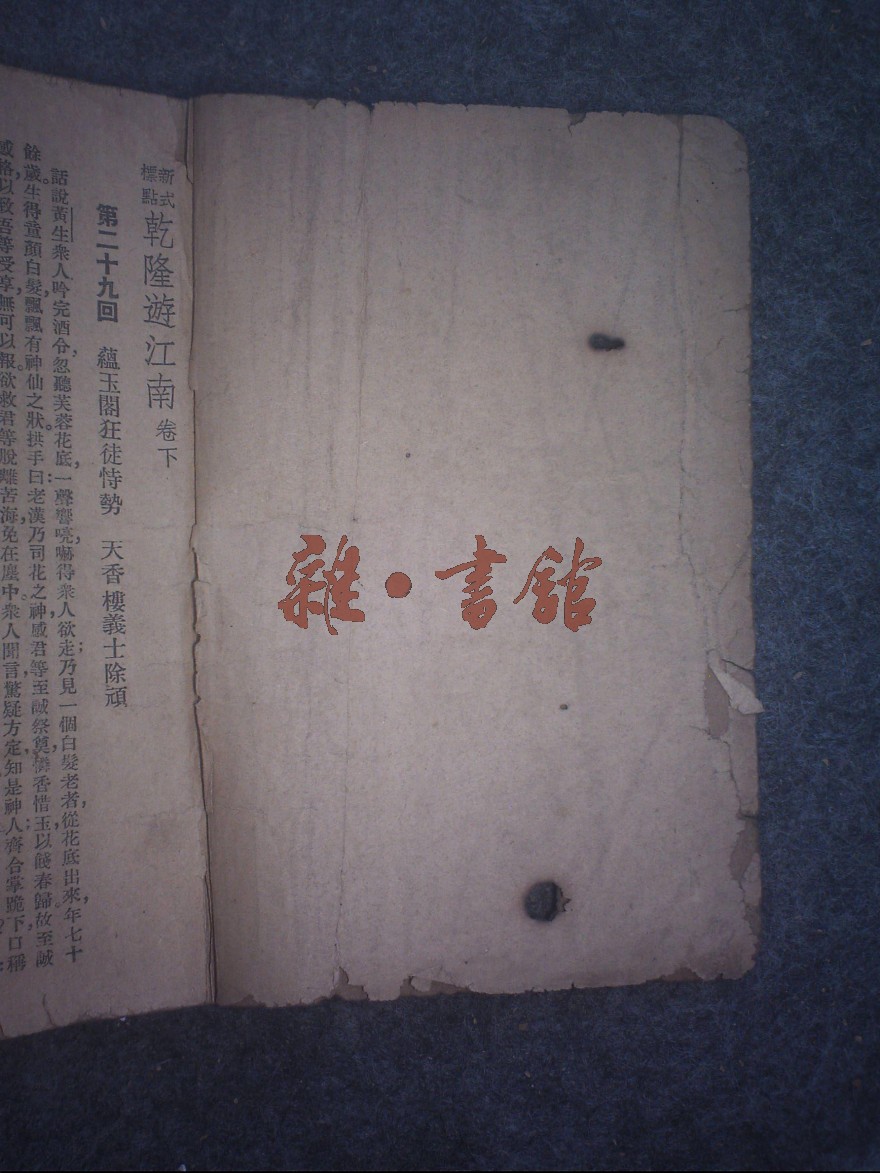 新式標點 乾隆遊江南 卷下
第二十九回 蘊玉閣狂徒恃勢 天香樓義士除頑
話說黃生衆人吟完酒令，忽聽芙蓉花底，一聲響喨，嚇得衆人欲走；乃見一個白髮老者，從花底出來，年七十
餘歲。生得童顏白髮，飄飄有神仙之狀。拱手曰：老漢乃司花之神，感君等至誠祭奠，憐香惜玉，以餞春歸，故至誠
感格，以致吾等受享，無可以報，欲救君等脫離苦海，免在塵中。衆人聞言，驚疑方定，知是神人，齊合掌跪下，口稱
雜·書館